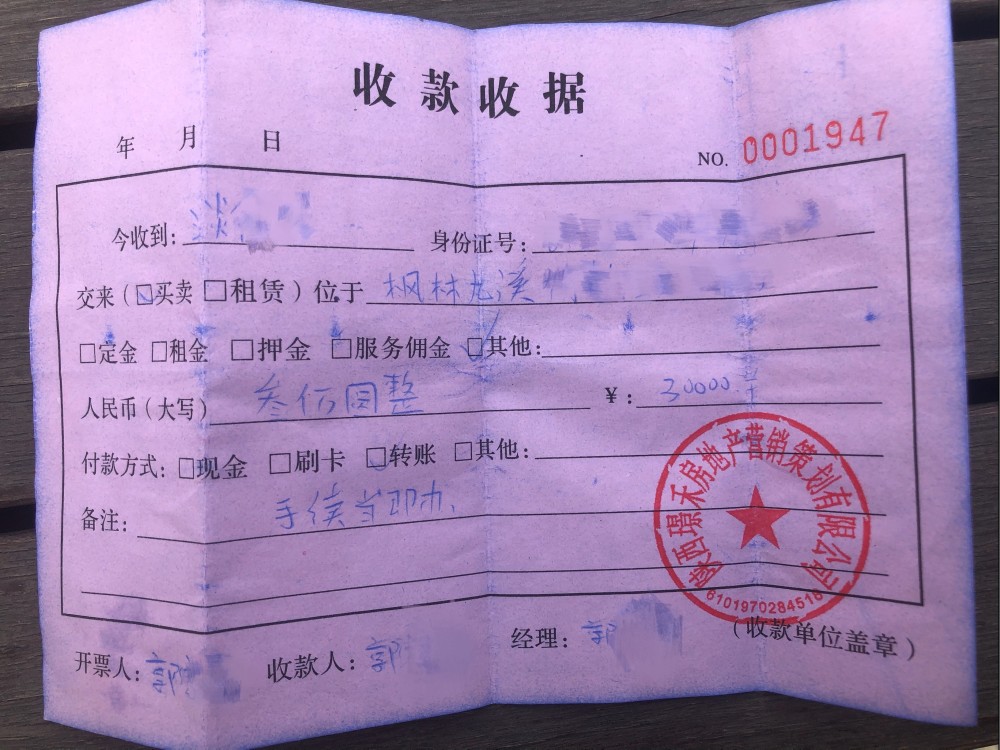 收款收据
年 月 日
NO. 0001947
今收到: 淡 身份证号:
交来(☑买卖 □租赁)位于 枫林九溪
□定金 □租金 □押金 □服务佣金 □其他:
人民币(大写) 叁佰圆整 ¥: 30000.
付款方式: □现金 □刷卡 ☑转账 □其他:
备注: 手续当即办.
陕西璟禾房地产营销策划有限公司
6101970284516
开票人: 郭 收款人: 郭 经理: 郭 (收款单位盖章)